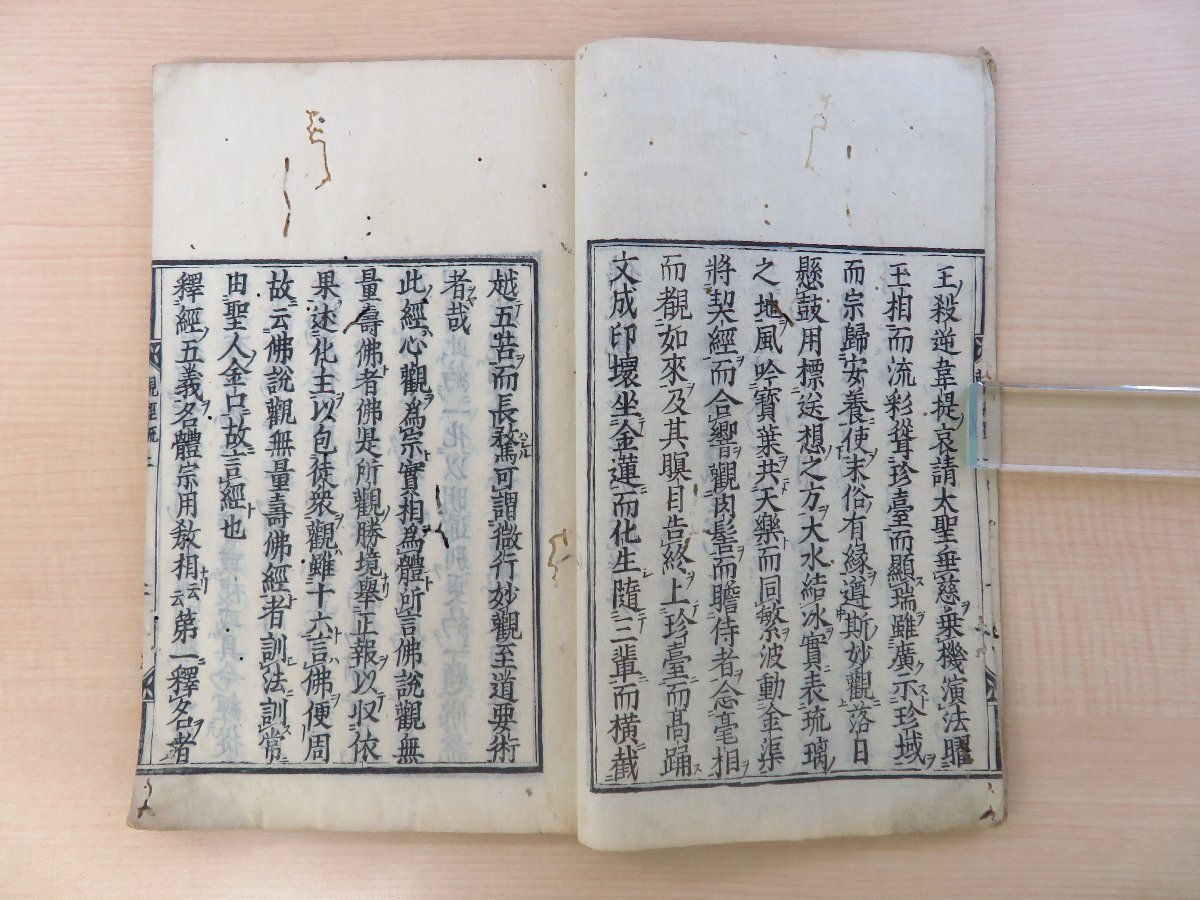 王殺逆韋提哀請大聖垂慈乗機演法曜
玉相而流彩聳珍臺而顯瑞雖廣示珍域
而宗歸安養使末俗有縁遵斯妙觀落日
懸鼓用標送想之方大水結冰實表琉璃
之地風吟寶葉共天樂而同繁波動金渠
將契經而合響觀肉髻而瞻侍者念毫相
而覩如來及其瞑目告終上珍臺而高踊
文成印壞坐金蓮而化生隨三輩而横截
越五苦而長騖可謂微行妙觀至道要術
者哉
此經心觀為宗實相為體所言佛說觀無
量壽佛者佛是所觀勝境舉正報以収依
果述化主以包徒衆觀雖十六言佛便周
故云佛說觀無量壽佛經者訓法訓常
由聖人金口故言經也
釋經五義名體宗用教相云云第一釋名者
觀經疏